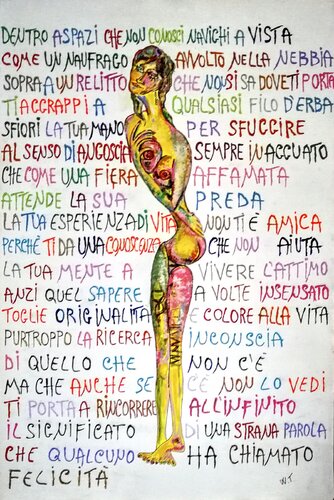 DENTRO A SPAZI CHE NON CONOSCI NAVICHI A VISTA
COME UN NAUFRAGO AVVOLTO NELLA NEBBIA
SOPRA A UN RELITTO CHE NON SI SA DOVE TI PORTA
TI AGGRAPPI A QUALSIASI FILO D'ERBA
SFIORI LA TUA MANO PER SFUGGIRE
AL SENSO DI ANGOSCIA SEMPRE IN AGGUATO
CHE COME UNA FIERA AFFAMATA
ATTENDE LA SUA PREDA
LA TUA ESPERIENZA DI VITA NON TI È AMICA
PERCHÉ TI DA UNA CONOSCENZA CHE NON AIUTA
LA TUA MENTE A VIVERE L'ATTIMO
ANZI QUEL SAPERE A VOLTE INSENSATO
TOGLIE ORIGINALITÀ E COLORE ALLA VITA
PURTROPPO LA RICERCA INCONSCIA
DI QUELLO CHE NON C'È
MA CHE ANCHE SE C'È NON LO VEDI
TI PORTA A RINCORRERE ALL'INFINITO
IL SIGNIFICATO DI UNA STRANA PAROLA
CHE QUALCUNO HA CHIAMATO
FELICITÀ
W.T.